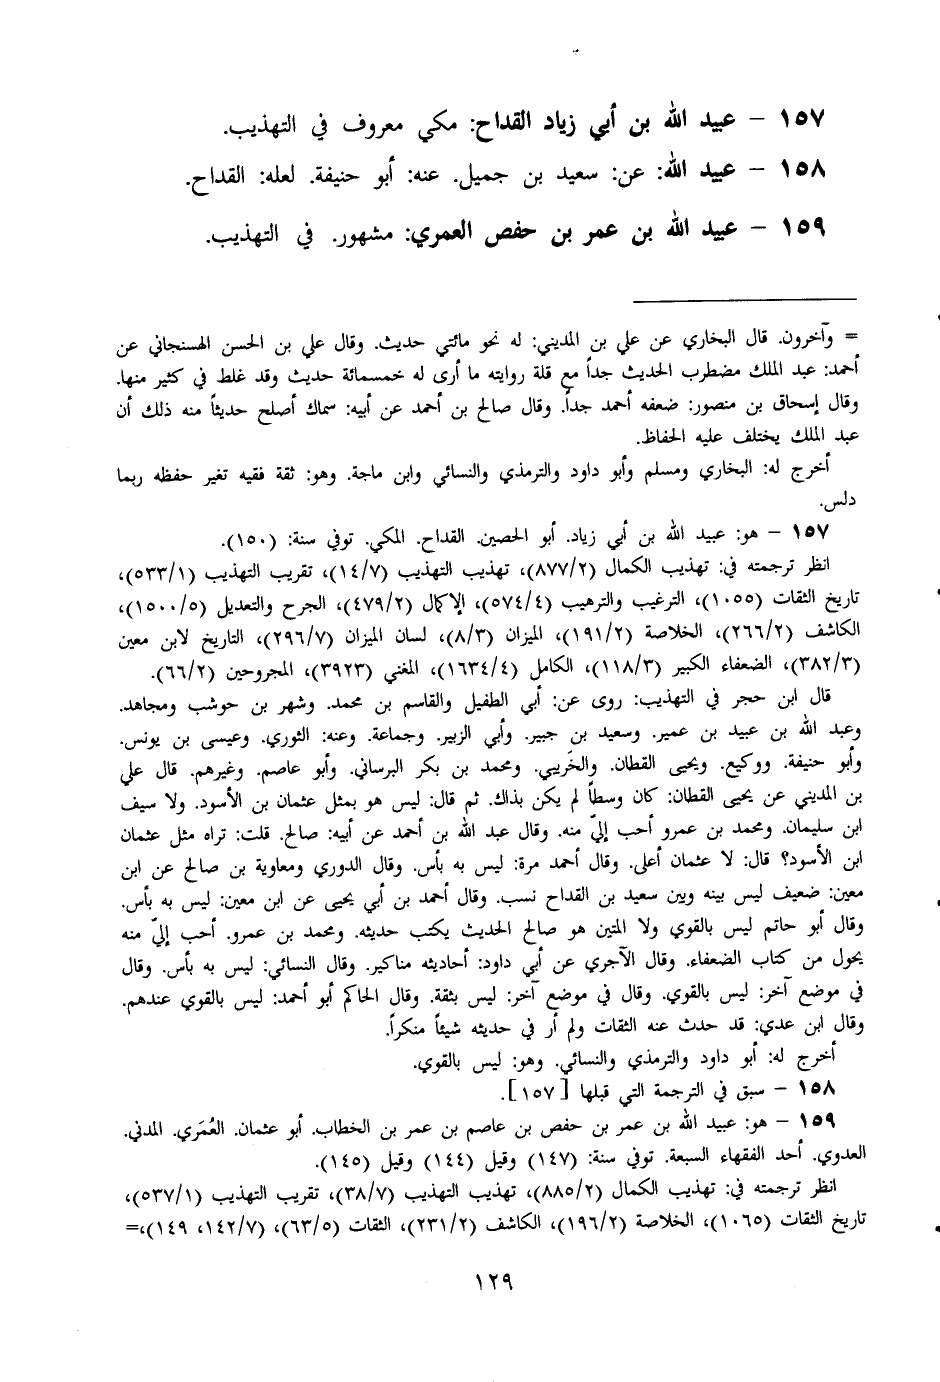 ١٥٧ – عبيد الله بن أبي زياد القداح: مكي معروف في التهذيب.
١٥٨ – عبيد الله: عن: سعيد بن جميل. عنه: أبو حنيفة. لعله: القداح.
١٥٩ – عبيد الله بن عمر بن حفص العمري: مشهور. في التهذيب.
= وآخرون. قال البخاري عن علي بن المديني: له نحو مائتي حديث. وقال علي بن الحسن الهسنجاني عن
أحمد: عبد الملك مضطرب الحديث جداً مع قلة روايته ما أرى له خمسمائة حديث وقد غلط في كثير منها.
وقال إسحاق بن منصور: ضعفه أحمد جداً. وقال صالح بن أحمد عن أبيه: سماك أصلح حديثاً منه ذلك أن
عبد الملك يختلف عليه الحفاظ.
أخرج له: البخاري ومسلم وأبو داود والترمذي والنسائي وابن ماجة. وهو: ثقة فقيه تغير حفظه ربما
دلس.
١٥٧ – هو: عبيد الله بن أبي زياد. أبو الحصين. القداح. المكي. توفي سنة: (١٥٠).
انظر ترجمته في: تهذيب الكمال (٨٧٧/٢)، تهذيب التهذيب (١٤/٧)، تقريب التهذيب (٥٣٣/١)،
تاريخ الثقات (١٠٥٥)، الترغيب والترهيب (٥٧٤/٤)، الإكمال (٤٧٩/٢)، الجرح والتعديل (١٥٠٠/٥)،
الكاشف (٢٦٦/٢)، الخلاصة (١٩١/٢)، الميزان (٨/٣)، لسان الميزان (٢٩٦/٧)، التاريخ لابن معين
(٣٨٢/٣)، الضعفاء الكبير (١١٨/٣)، الكامل (١٦٣٤/٤)، المغني (٣٩٢٣)، المجروحين (٦٦/٢).
قال ابن حجر في التهذيب: روى عن: أبي الطفيل والقاسم بن محمد. وشهر بن حوشب ومجاهد.
وعبد الله بن عبيد بن عمير. وسعيد بن جبير. وأبي الزبير. وجماعة. وعنه: الثوري. وعيسى بن يونس.
وأبو حنيفة. ووكيع. ويحيى القطان. والخَريبي. ومحمد بن بكر البرساني. وأبو عاصم. وغيرهم. قال علي
بن المديني عن يحيى القطان: كان وسطاً لم يكن بذاك. ثم قال: ليس هو بمثل عثمان بن الأسود. ولا سيف
ابن سليمان. ومحمد بن عمرو أحب إليّ منه. وقال عبد الله بن أحمد عن أبيه: صالح. قلت: تراه مثل عثمان
ابن الأسود؟ قال: لا عثمان أعلى. وقال أحمد مرة: ليس به بأس. وقال الدوري ومعاوية بن صالح عن ابن
معين: ضعيف ليس بينه وبين سعيد بن القداح نسب. وقال أحمد بن أبي يحيى عن ابن معين: ليس به بأس.
وقال أبو حاتم ليس بالقوي ولا المتين هو صالح الحديث يكتب حديثه. ومحمد بن عمرو. أحب إليّ منه
يحول من كتاب الضعفاء. وقال الآجري عن أبي داود: أحاديثه مناكير. وقال النسائي: ليس به بأس. وقال
في موضع آخر: ليس بالقوي. وقال في موضع آخر: ليس بثقة. وقال الحاكم أبو أحمد: ليس بالقوي عندهم.
وقال ابن عدي: قد حدث عنه الثقات ولم أر في حديثه شيئاً منكراً.
أخرج له: أبو داود والترمذي والنسائي. وهو: ليس بالقوي.
١٥٨ – سبق في الترجمة التي قبلها [١٥٧].
١٥٩ – هو: عبيد الله بن عمر بن حفص بن عاصم بن عمر بن الخطاب. أبو عثمان. العُمَري. المدني.
العدوي. أحد الفقهاء السبعة. توفي سنة: (١٤٧) وقيل (١٤٤) وقيل (١٤٥).
انظر ترجمته في: تهذيب الكمال (٨٨٥/٢)، تهذيب التهذيب (٣٨/٧)، تقريب التهذيب (٥٣٧/١)،
تاريخ الثقات (١٠٦٥)، الخلاصة (١٩٦/٢)، الكاشف (٢٣١/٢)، الثقات (٦٣/٥)، (١٤٢/٧، ١٤٩)،=
١٢٩